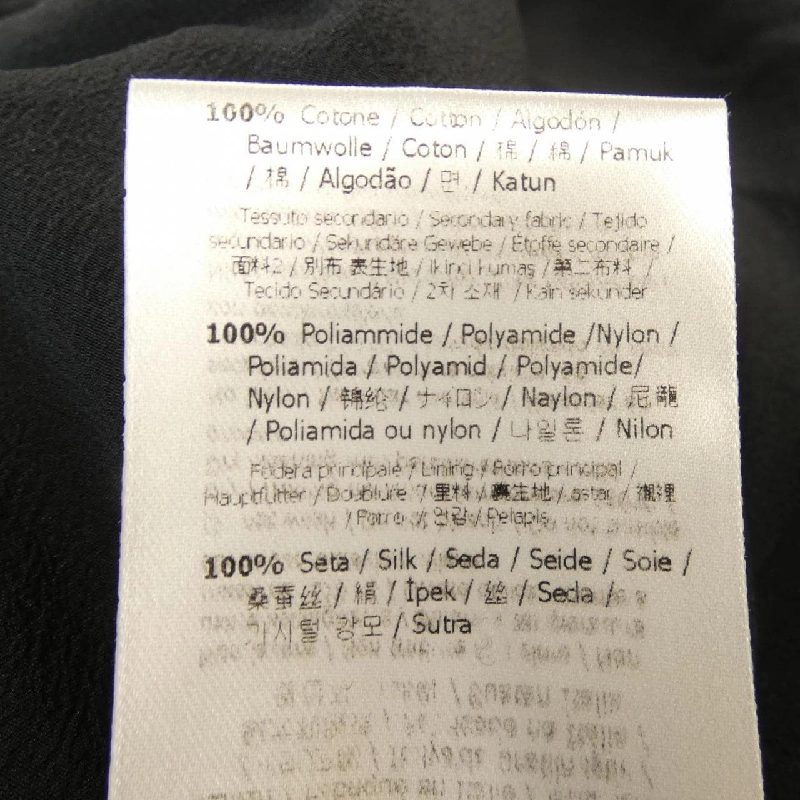 100% Cotone / Cotton / Algodón /
Baumwolle / Coton / 棉 / 綿 / Pamuk
/ 棉 / Algodão / 면 / Katun
Tessuto secondario / Secondary fabric / Tejido
secundario / Sekundäre Gewebe / Étoffe secondaire /
面料2 / 別布 表生地 / İkinci kumaş / 第二布料 /
Tecido Secundário / 2차 소재 / Kain sekunder
100% Poliammide / Polyamide /Nylon /
Poliamida / Polyamid / Polyamide/
Nylon / 锦纶 / ナイロン / Naylon / 尼龍
/ Poliamida ou nylon / 나일론 / Nilon
Fodera principale / Lining / Forro principal /
Hauptfutter / Doublure / 里料 / 裏生地 / astar / 襯裡
/ Forro / 안감 / Pelapis
100% Seta / Silk / Seda / Seide / Soie /
桑蚕丝 / 絹 / İpek / 丝 / Seda /
가시털 향모 / Sutra